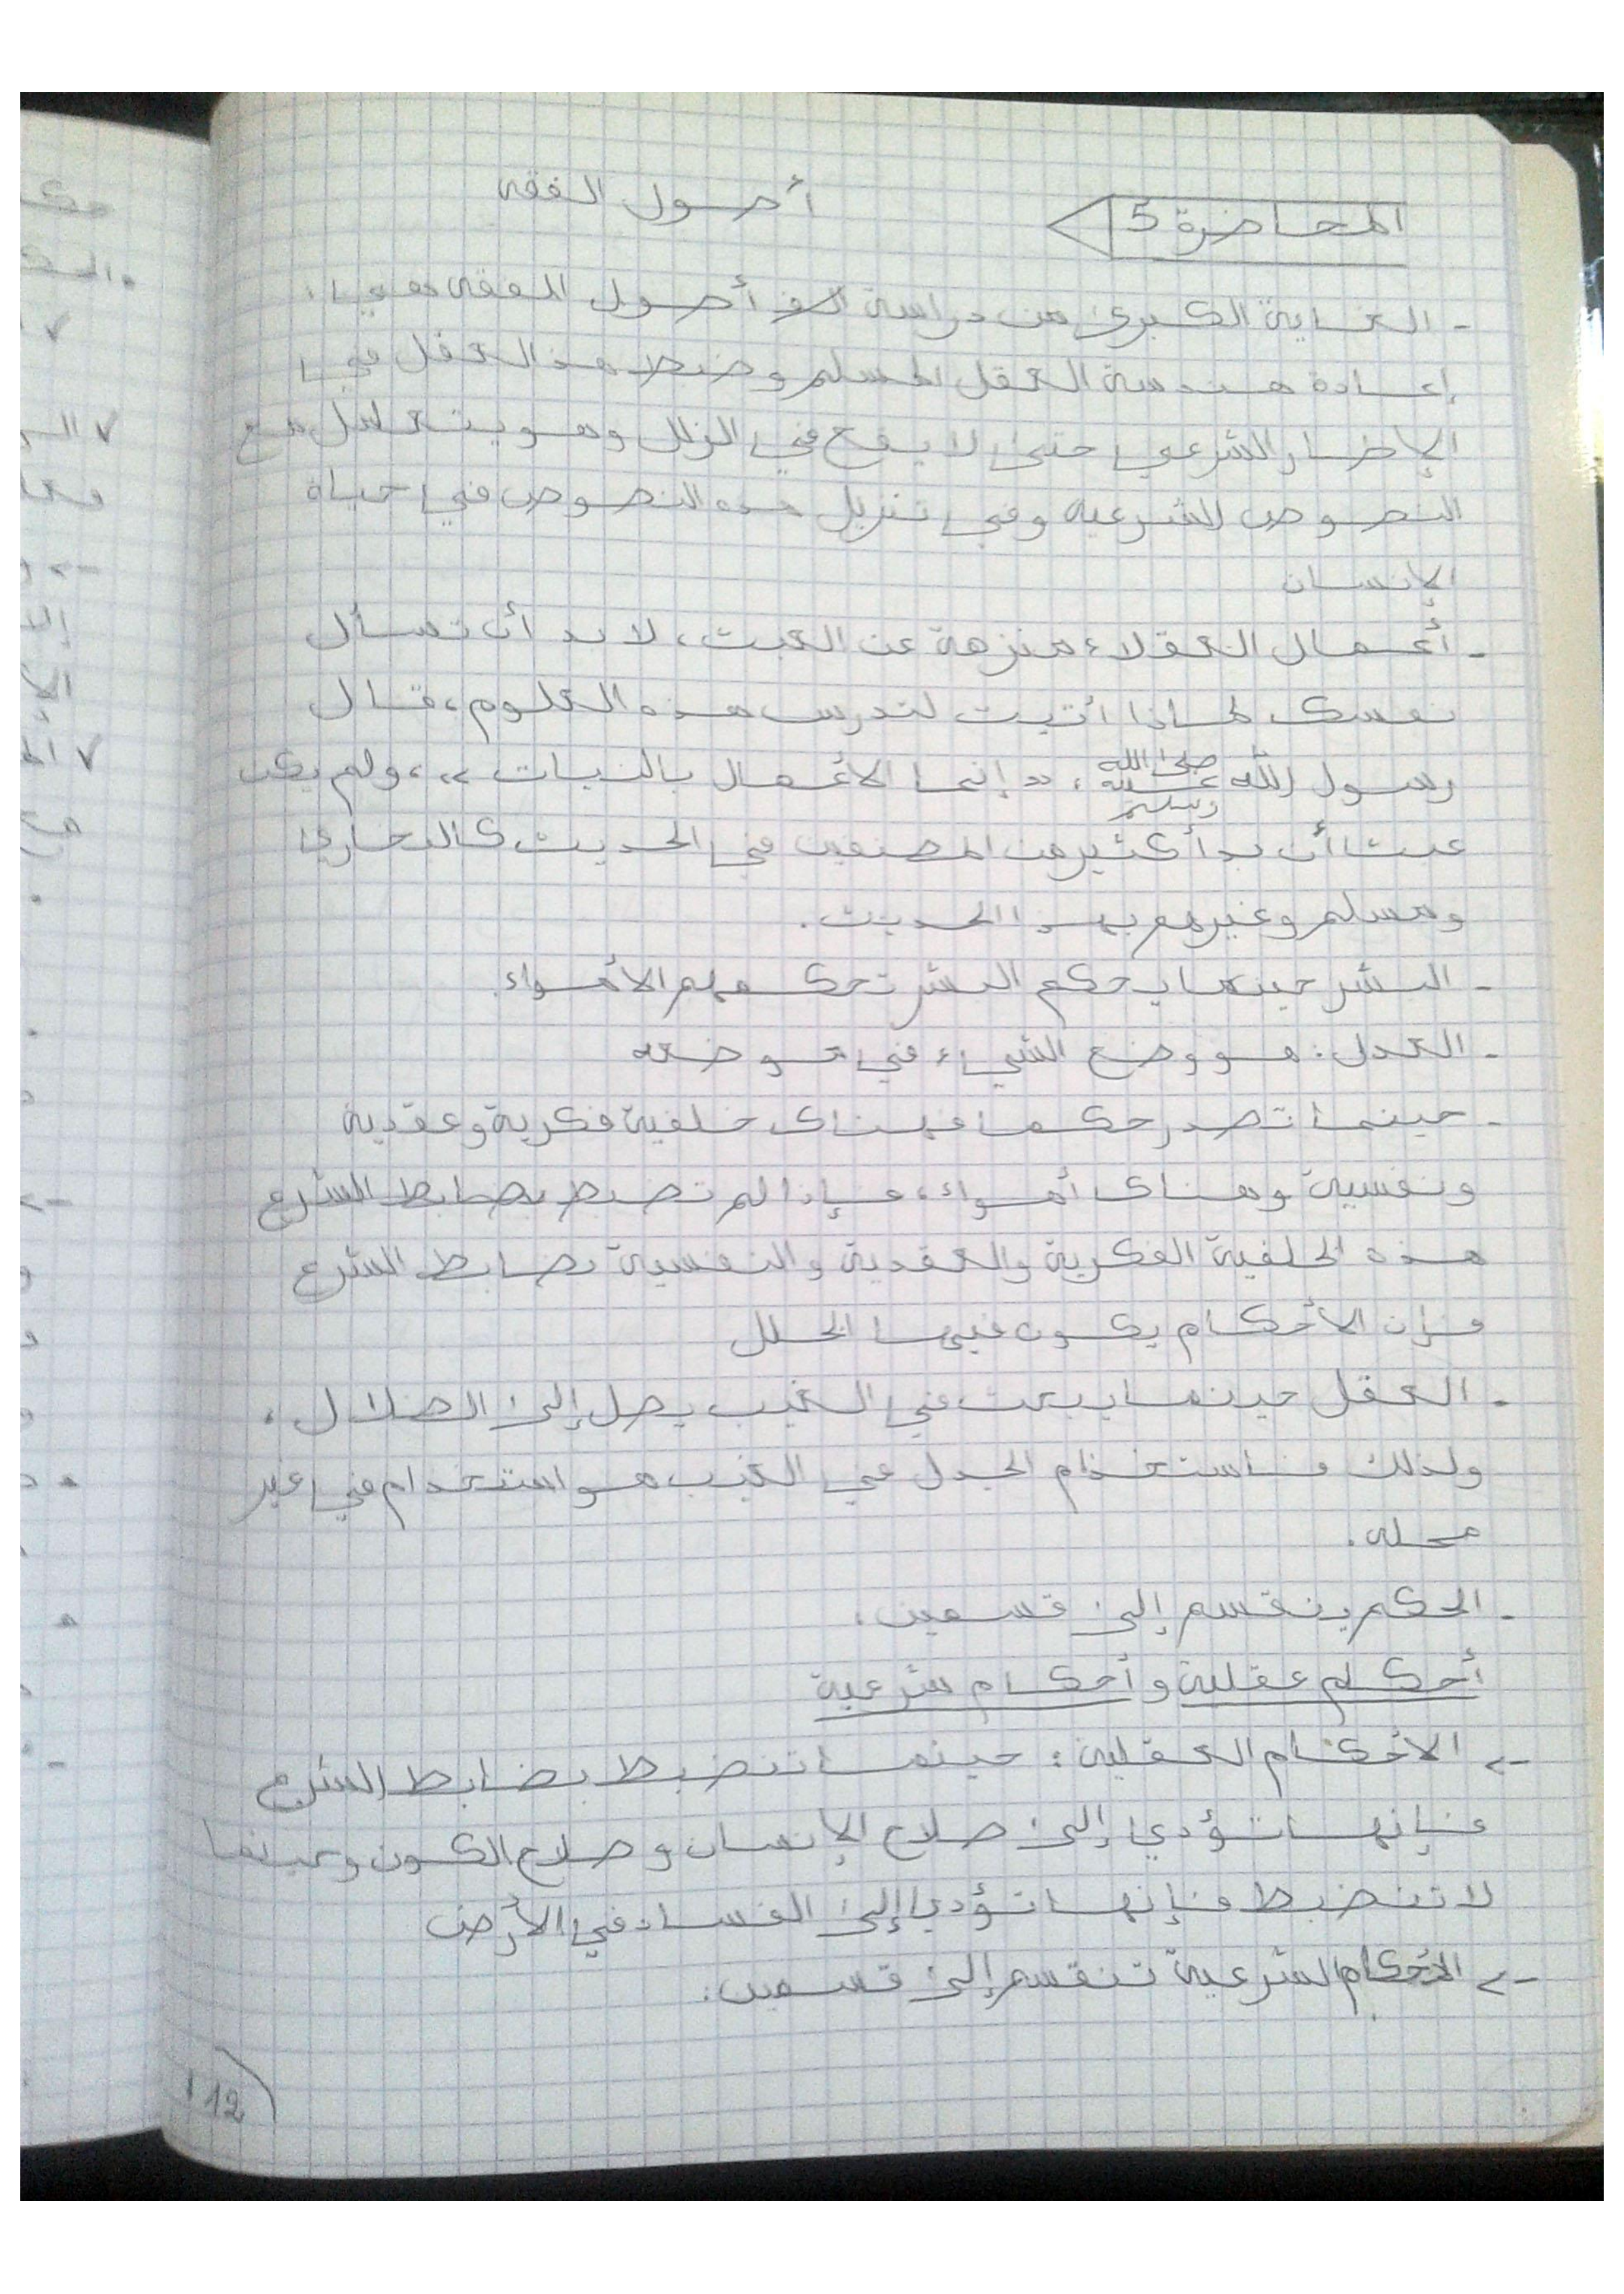 المحاضرة 5
أصول الفقه
- الغاية الكبرى من دراسة أصول الفقه هي:
إعادة هندسة العقل المسلم وضبط هذا العقل في
الإطار الشرعي حتى لا يقع في الزلل وهو يتعامل مع
النصوص الشرعية وفي تنزيل هذه النصوص في حياة
الإنسان
- أعمال العقلاء منزهة عن العبث، لا بد أن تسأل
نفسك لماذا أتيت لتدرس هذه العلوم، قال
رسول الله صلى الله عليه وسلم: «إنما الأعمال بالنيات»، ولم يكن
عبثا أن بدأ كثير من المصنفين في الحديث كالبخاري
ومسلم وغيرهم بهذا الحديث.
- البشر حينما يحكم البشر تحكمهم الأهواء.
- العدل: هو وضع الشيء في موضعه
- حينما تصدر حكما فهناك خلفية فكرية وعقدية
ونفسية وهناك أهواء، فإذا لم تضبط بضابط الشرع
هذه الخلفية الفكرية والعقدية والنفسية بضابط الشرع
فإن الأحكام يكون فيها الخلل
- العقل حينما يبحث في الغيب يصل إلى الضلال،
ولذلك فاستخدام الجدل في الغيب هو استخدام في غير
محله.
- الحكم ينقسم إلى قسمين:
أحكام عقلية وأحكام شرعية
-> الأحكام العقلية: حينما تنضبط بضابط الشرع
فإنها تؤدي إلى صلاح الإنسان وصلاح الكون وحينما
لا تنضبط فإنها تؤدي إلى الفساد في الأرض
-> الأحكام الشرعية تنقسم إلى قسمين:
12